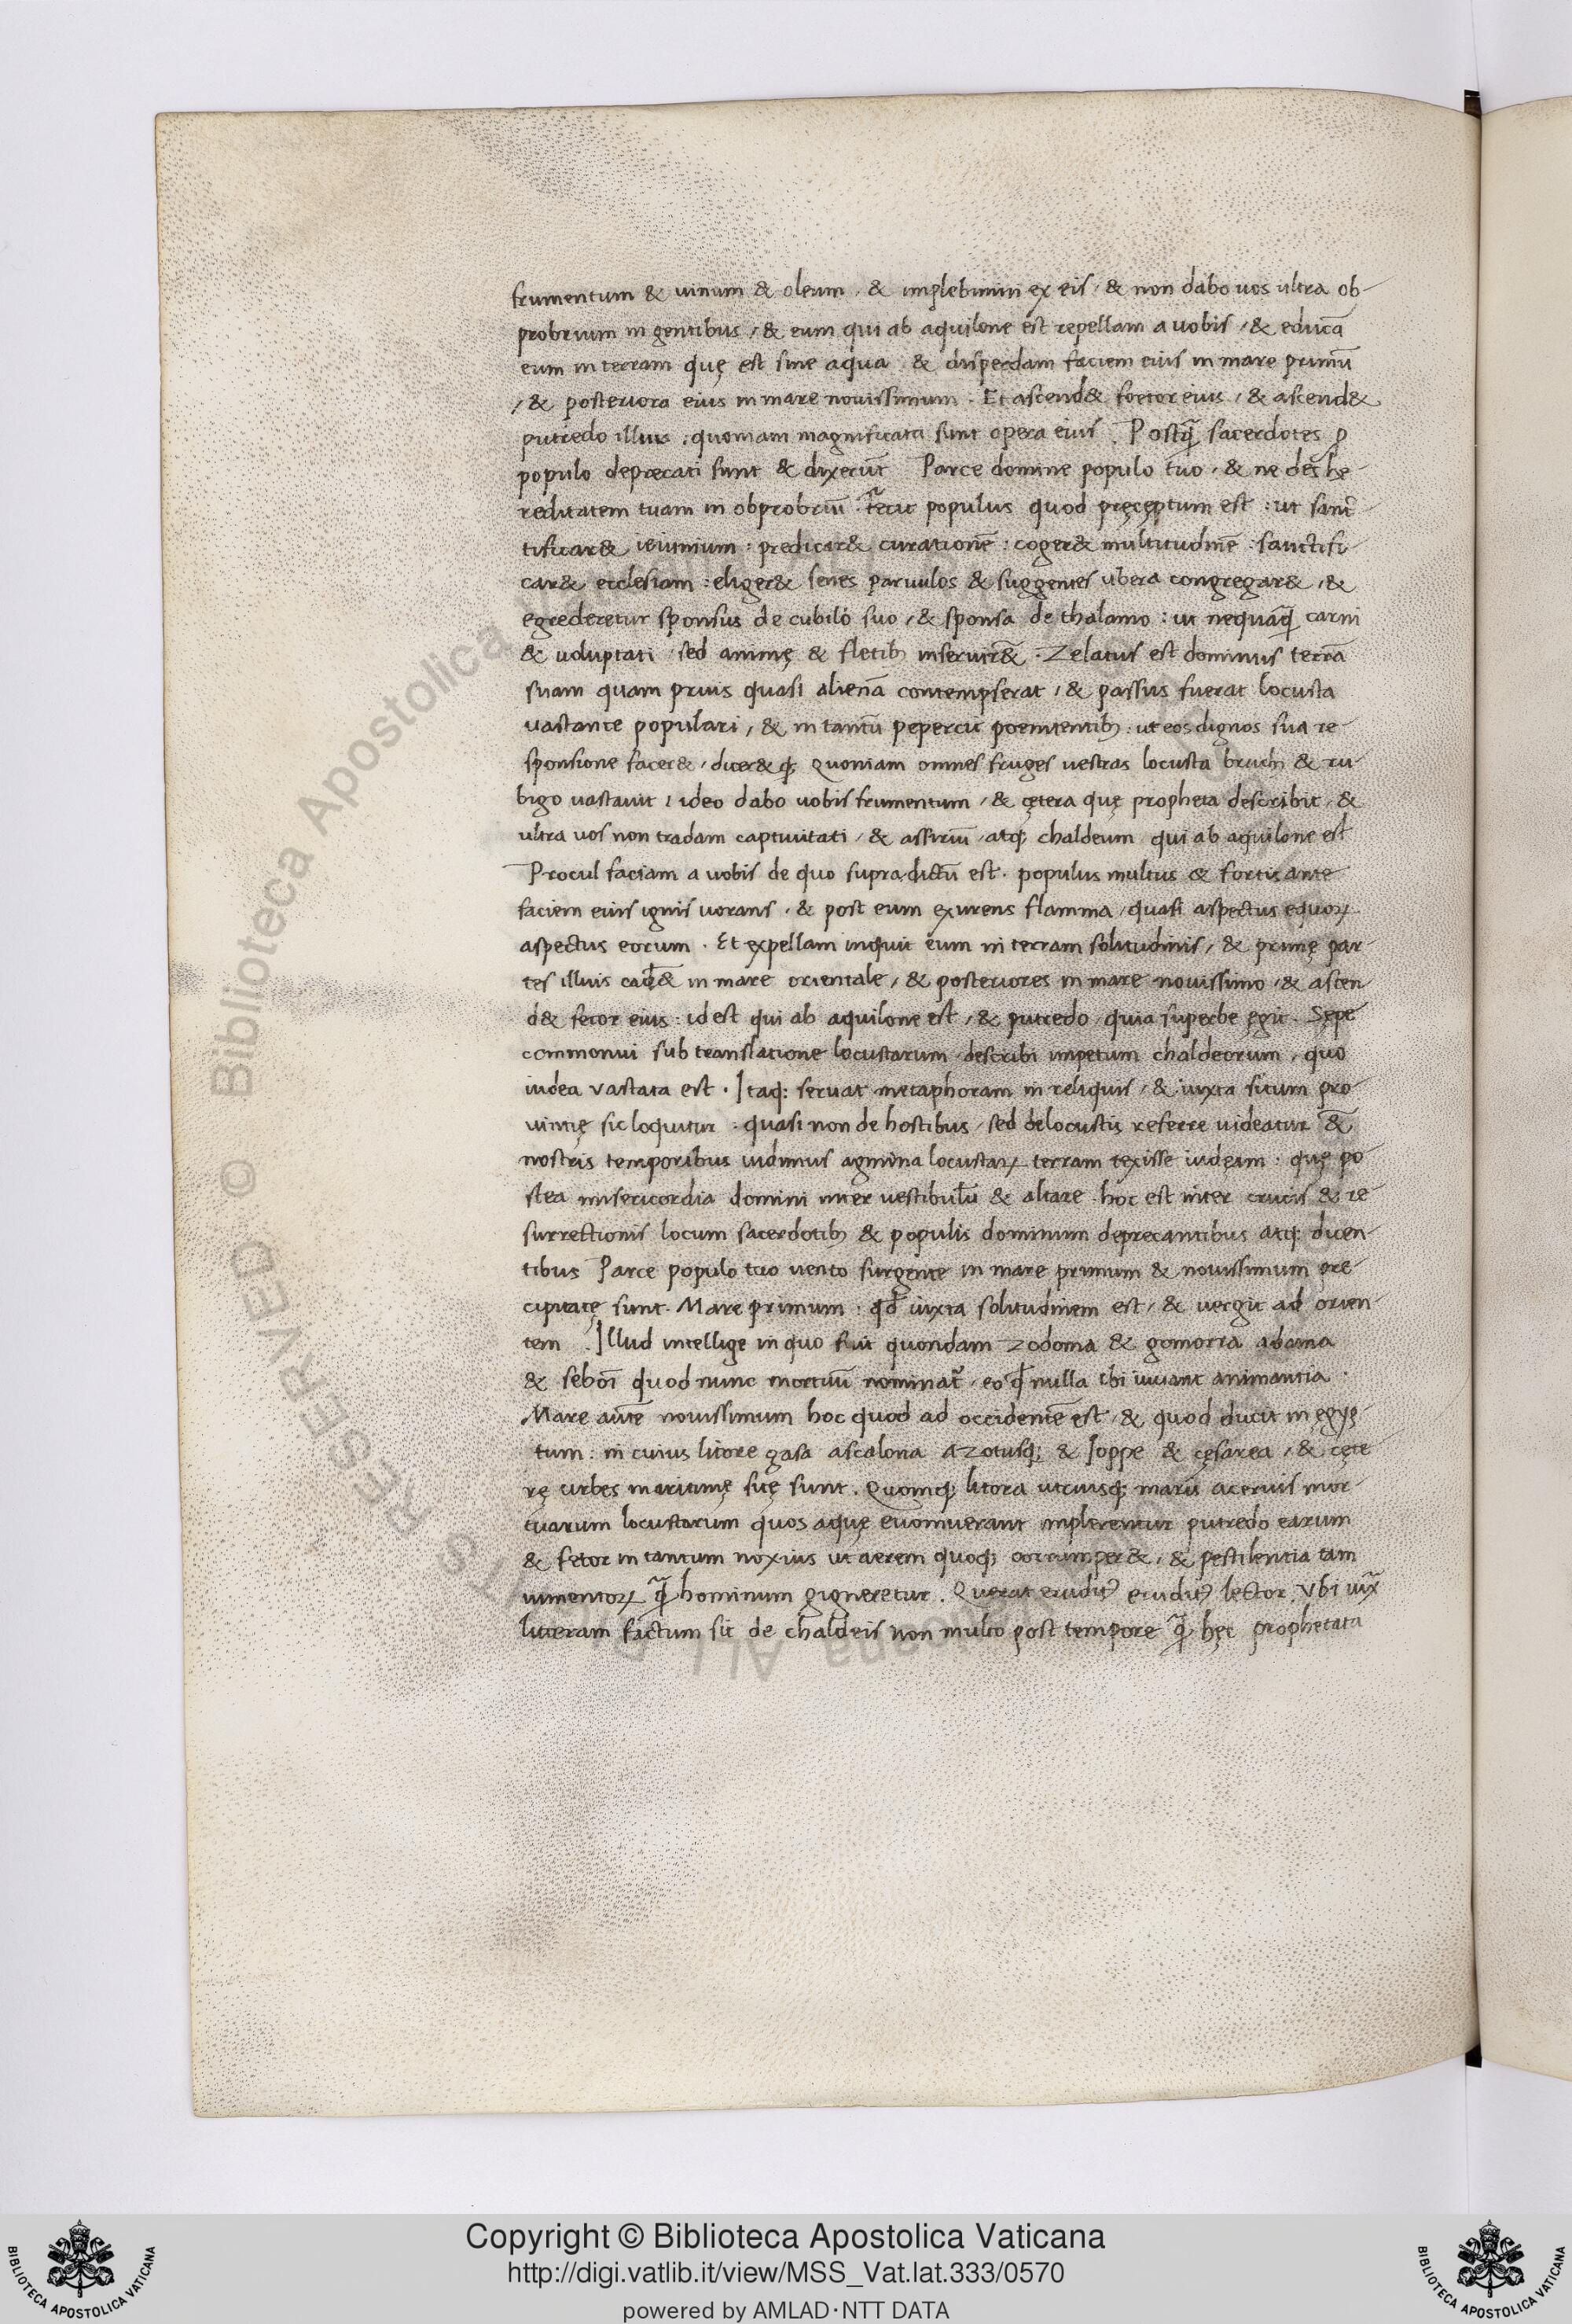 frumentum & uinum & oleum, & implebimini ex eis, & non dabo uos ultra ob-
probrium in gentibus, & eum qui ab aquilone est repellam a uobis, & educā
eum in terram quę est sine aqua & disperdam faciem eius in mare primū
, & posteriora eius in mare nouissimum. Et ascend& foetor eius, & ascend&
putredo illius, quoniam magnificata sunt opera eius. Postq̃ sacerdotes p
populo deprecati sunt & dixerūt Parce domine populo tuo, & ne des hę-
reditatem tuam in obprobriū. fecit populus quod pręceptum est: ut sanc-
tificar& ieiunium: predicar& curationē: coger& multitudinē: sanctifi-
car& ecclesiam: eliger& senes paruulos & suggentes ubera congregar&, &
egrederetur sponsus de cubili suo, & sponsa de thalamo: ut nequaq̃ carni
& voluptati sed animę & fletibꝫ inseruir&. Zelatus est dominus terrā
suam quam prius quasi alienā contempserat, & passus fuerat locusta
vastante populari, & in tantū pepercit poenitentibꝫ: ut eos dignos sua re-
sponsione facer&, dicer&qꝫ Quoniam omnes fruges uestras locusta bruchꝫ & ru-
bigo vastauit, ideo dabo uobis frumentum, & cętera quę propheta describit, &
ultra uos non tradam captiuitati, & assiriū, atqꝫ chaldeum qui ab aquilone est
Procul faciam a uobis de quo supra dictū est. populus multus & fortis ante
faciem eius ignis uorans, & post eum exurens flamma, quasi aspectus equoꝝ
aspectus eorum. Et expellam inquit eum in terram solitudinis, & primę par-
tes illius cad& in mare orientale, & posteriores in mare nouissimo, & ascen-
d& fetor eius: id est qui ab aquilone est, & putredo quia superbe egit. Sępe
commonui sub translatione locustarum describi impetum chaldeorum, quo
iudea vastata est. Itaqꝫ seruat metaphoram in reliquis, & iuxta situm pro-
uintię sic loquitur. quasi non de hostibus, sed de locustis referre uideatur &
nostris temporibus uidimus agmina locustaꝝ terram texisse iudęam: quę po-
stea misericordia domini inter vestibulū & altare. hoc est inter crucis & re-
surrectionis locum sacerdotibꝫ & populis dominum deprecantibus atqꝫ dicen-
tibus Parce populo tuo uento surgente in mare primum & nouissimum pre-
cipitatę sunt. Mare primum: qd̄ iuxta solitudinem est, & uergit ad orien-
tem. Illud intellige in quo fuit quondam zodoma & gomorra adama
& seboī quod nunc mortuū nominat᷑, eo q̄ nulla ibi uiuant animantia.
Mare autē nouissimum hoc quod ad occidentē est, & quod ducit in egyp-
tum: in cuius litore gasa ascalona Azotusqꝫ & Ioppe & cęsarea, & cęte-
rę urbes maritimę sitę sunt. Quomqꝫ litora utriusqꝫ maris aceruis mor-
tuarum locustarum quos aquę euomuerant implerentur putredo earum
& fetor in tantum noxius ut aerem quoqꝫ corrumper&, & pestilentia tam
iumentoꝝ q̃ hominum gigneretur. Querat eruditꝰ eruditꝰ lector. Vbi iux̄
litteram factum sit de chaldeis non multo post tempore q̃ hęc prophetata
Copyright © Biblioteca Apostolica Vaticana
http://digi.vatlib.it/view/MSS_Vat.lat.333/0570
powered by AMLAD·NTT DATA